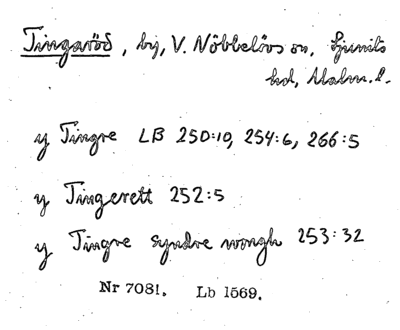 Tingaröd, by, V. Nöbbelövs sn, Ljunits
hd, Malm. l.
y Tingre LB 250:10, 254:6, 266:5
y Tingerett 252:5
y Tingre syndre wongh 253:32
Nr 7081. Lb 1569.